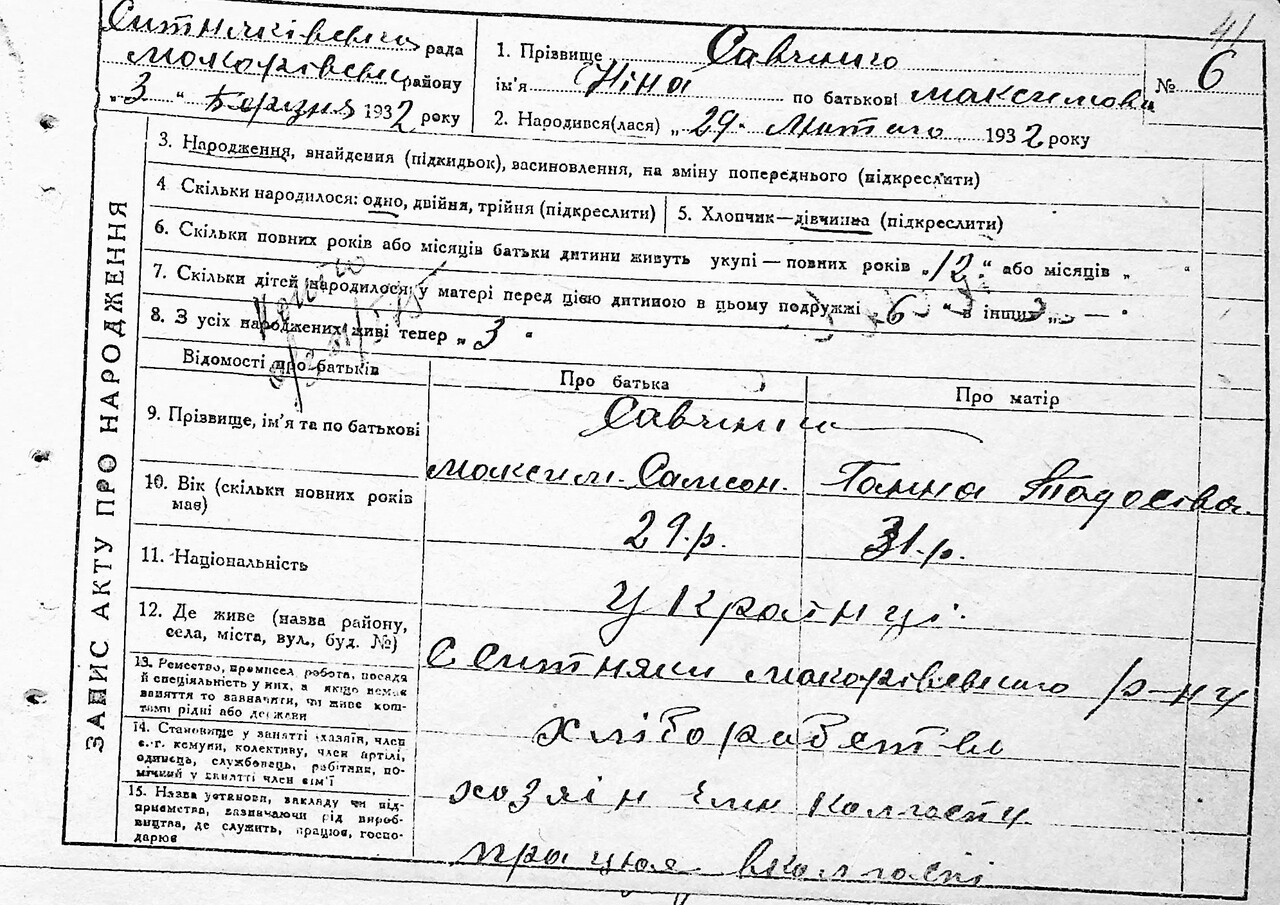 41
Ситняківська рада
Макарівськ району
„3" Березня 1932 року
1. Прізвище Савченко
ім'я Ніна по батькові Максимовн
№ 6
2. Народився(лася) „29" Лютого 1932 року
ЗАПИС АКТУ ПРО НАРОДЖЕННЯ
3. Народження, знайдення (підкидьок), васиновлення, на вміну попереднього (підкреслити)
4 Скільки народилося: одно, двійня, трійня (підкреслити)
5. Хлопчик—дівчинка (підкреслити)
6. Скільки повних років або місяців батьки дитини живуть укупі—повних років „12" або місяців „ "
7. Скільки дітей народилося у матері перед цією дитиною в цьому подружжі 6 " в інших „ — "
8. З усіх народжених живі тепер „3 "
Відомості про батьків
Про батька
Про матір
9. Прізвище, ім'я та по батькові
Савченко
Максим Самсон.
Ганна Тадосівна
10. Вік (скільки повних років має)
29.р.
31.р.
11. Національність
Українці
12. Де живе (назва району,
села, міста, вул., буд. №)
С Ситняки Макарівського р-ну
13. Ремество, промисел, робота, посада
й спеціяльність у них, а якщо немає
ваняття то вазначити, чи живе кош-
тами рідні або держави
хліборобство
14. Становище у занятті (хазяїн, член
с.-г. комуни, колективу, член артілі,
одинець, службовець, робітник, по-
мічний у ванятті член сім'ї
хозяін член колгоспу
15. Назва установи, закладу чи під-
приємства, вазначаючи рід вироб-
ництва, де служить, працює, госпо-
дарює
працює в колгоспі